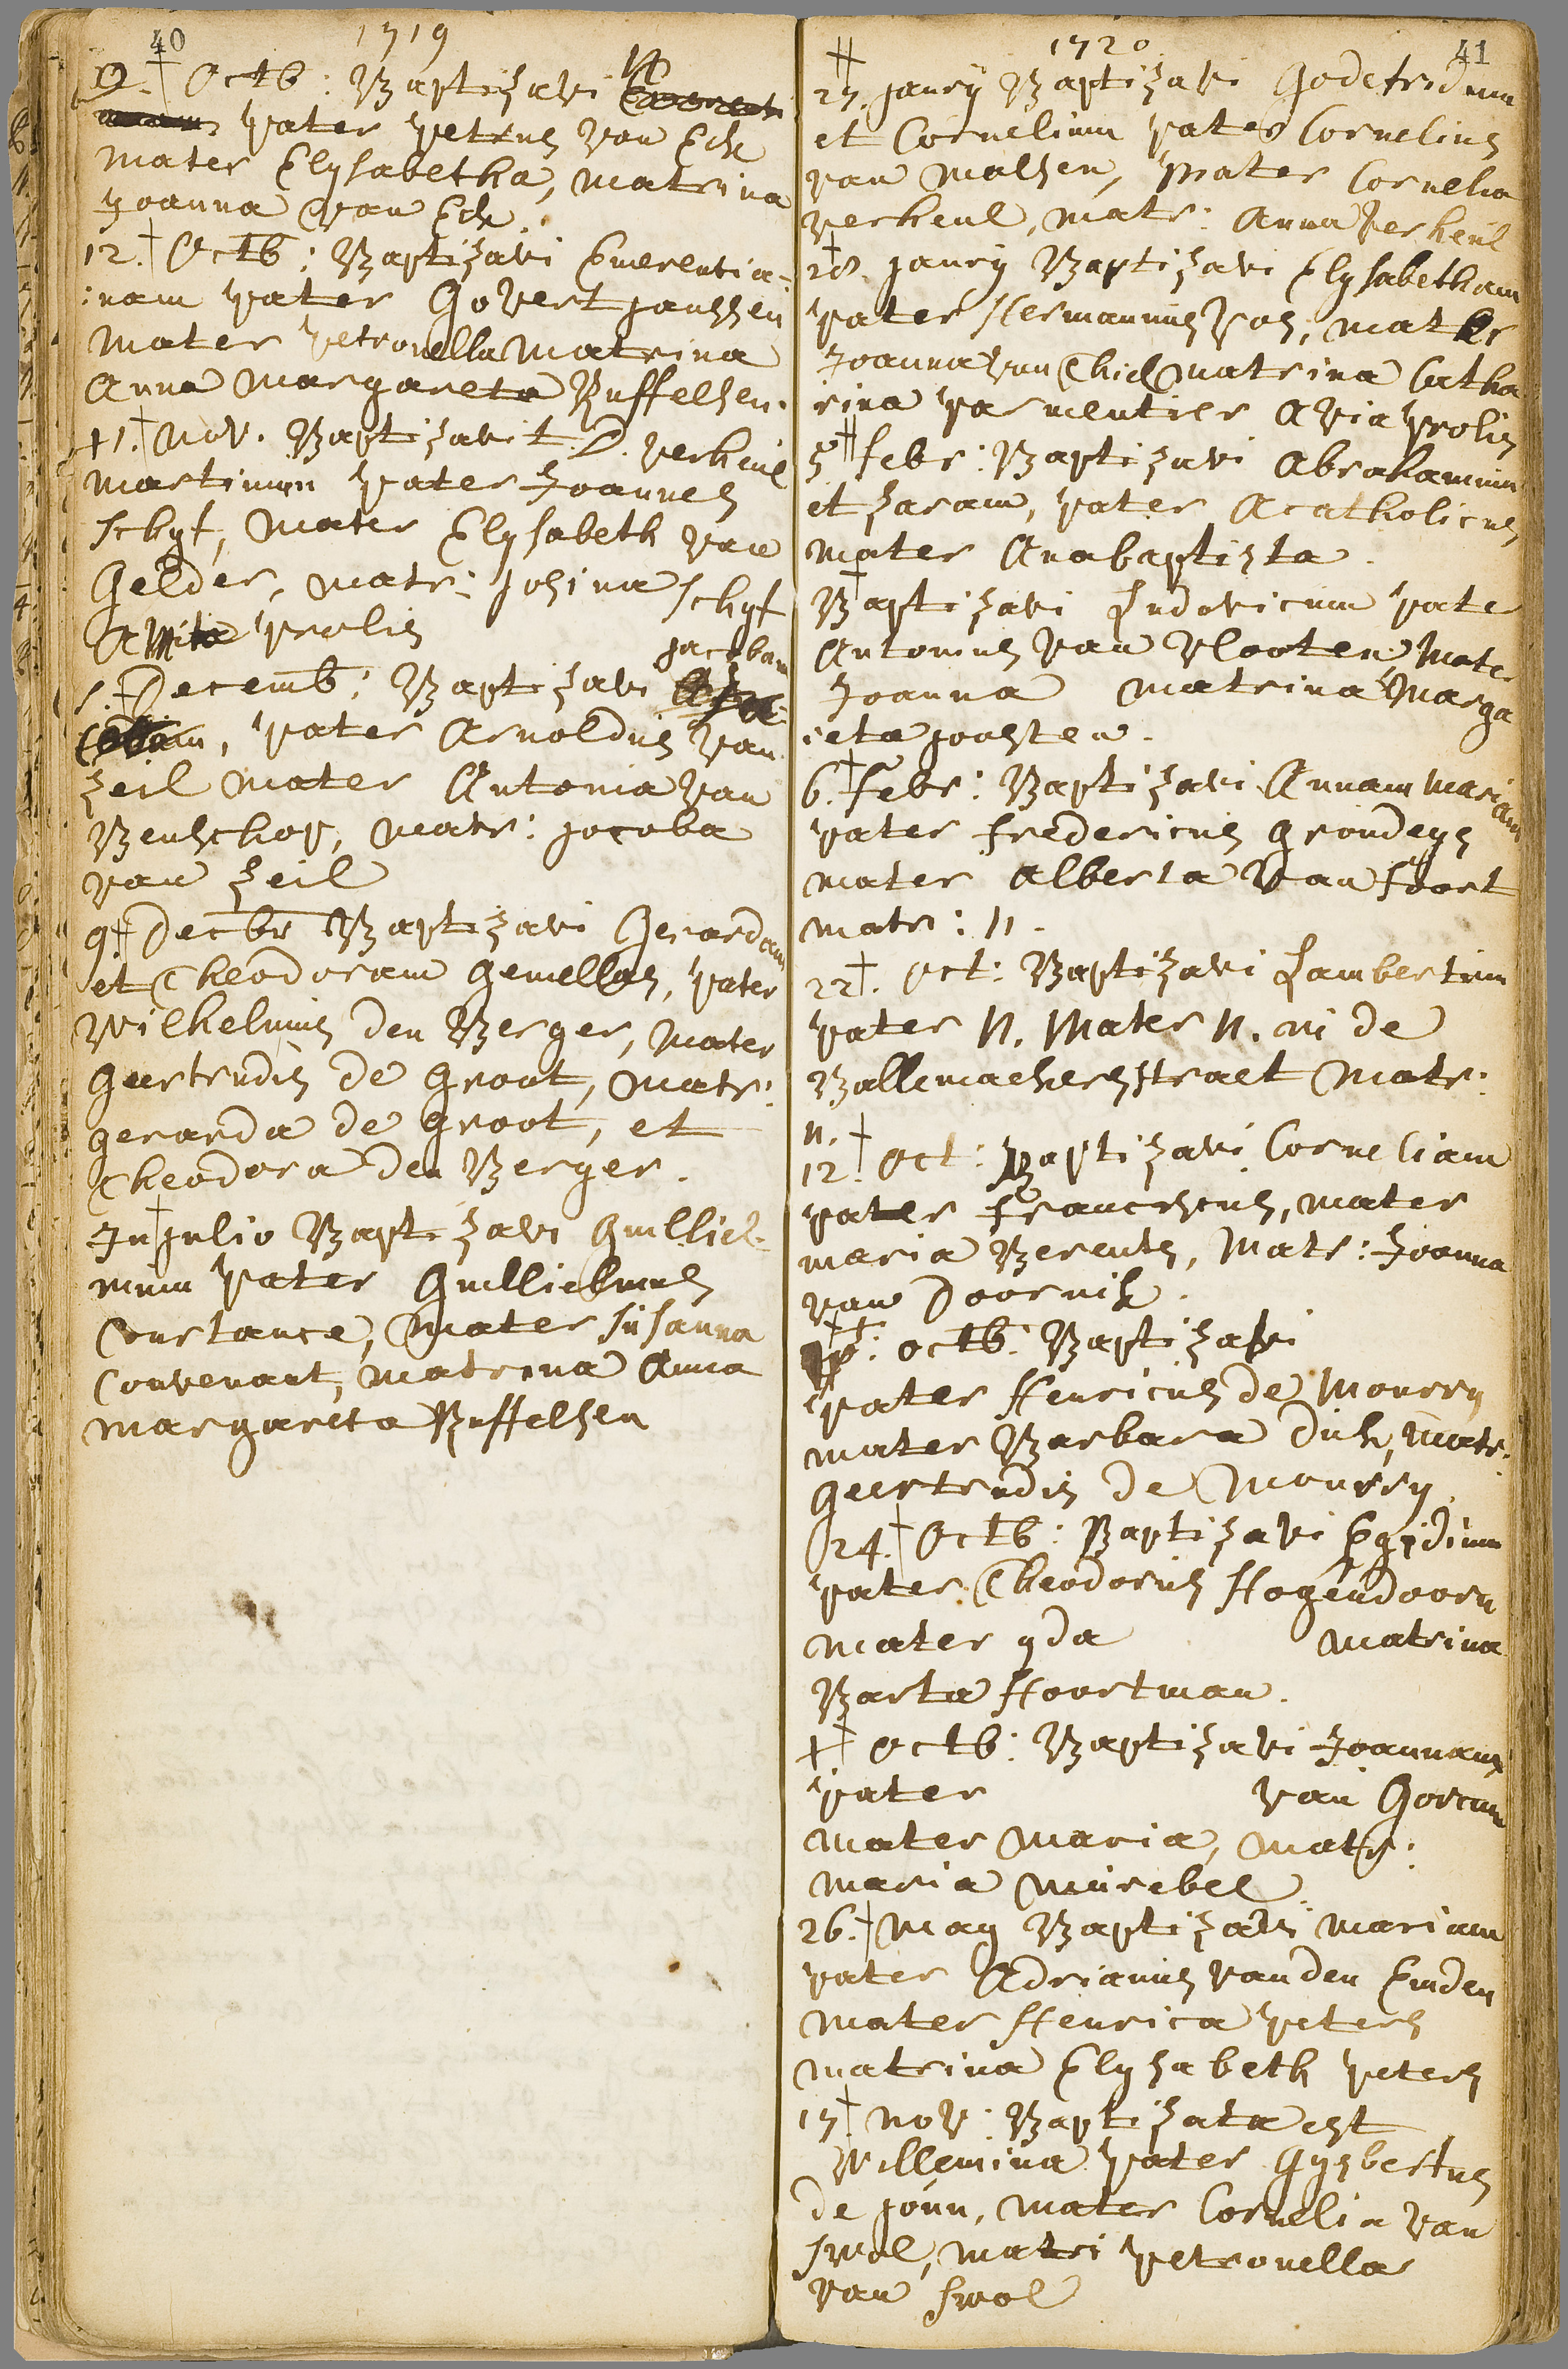 40
1719
Octb: Baptizavi N
pater petrus van Eck
mater Elysabetha, matrina
Joanna van Eck.
12. Octb: Baptizavi Emerentia-
:nam pater Govert Janssen
mater petronella matrina
Anna margareta Buffelsen.
11. nov. Baptizavit D. verheul
martinum pater Joannes
schyf, mater Elysabeth van
Gelder, matr: Josina schyf
Amita prolis
Jacobam
5. Decemb: Baptizavi
, pater Arnoldus van
zeil mater Antonia van
Benschop, matr: Jacoba
van zeil
9 Decbr Baptizavi Gerardam
et Theodoram gemellas, pater
Wilhelmus den Berger, mater
Geertrudis de Groot, matr:
gerarda de groot, et
Theodora den Berger.
In Julio Baptizavi Guilliel-
mum pater Guillielmus
Constance, mater susanna
Convenant, matrina Anna
margareta Buffelsen
1720
41
27. Janry Baptizavi Godefridum
et Cornelium pater Cornelius
van malsen, mater Cornelia
verheul, matr: Anna verheul
28. Janry Baptizavi Elysabetham
pater Hermannus Vos, mater
Joanna van Thiel matrina Catha
rina parmentier Avia prolis
5 febr: Baptizavi Abrahamum
et saram, pater Acatholicus,
mater Anabaptista.
Baptizavi Ludovicum pater
Antonius van Vlooten, mater
Joanna matrina Marga
reta Joosten.
6. febr: Baptizavi Annam mariam
pater fredericus grondeys
mater Alberta van foort
matr: N.
22. oct: Baptizavi Lambertum
pater N. mater N. in de
Ballemackersstraet matr:
N.
12. oct: Baptizavi Corneliam
pater franciscus, mater
maria Berents, matr: Joanna
van Doornik.
octb: Baptizavi
pater Henricus de mourry
mater Barbara Duk, matr:
Geertrudis de mourry.
24. Octb: Baptizavi Egidium
pater Theodorus Hogendoorn
mater yda matrina
Barta Hoortman.
octb: Baptizavi Joannam
pater van Gorcum
mater maria, matr:
maria murebel
26. may Baptizavi mariam
pater Adrianus van den Emden
mater Henrica peters
matrina Elysabeth peters
17 nov: Baptizata est
Willemina pater Gysbertus
de Jonn, mater Cornelia van
swol, matri petronella
van swol